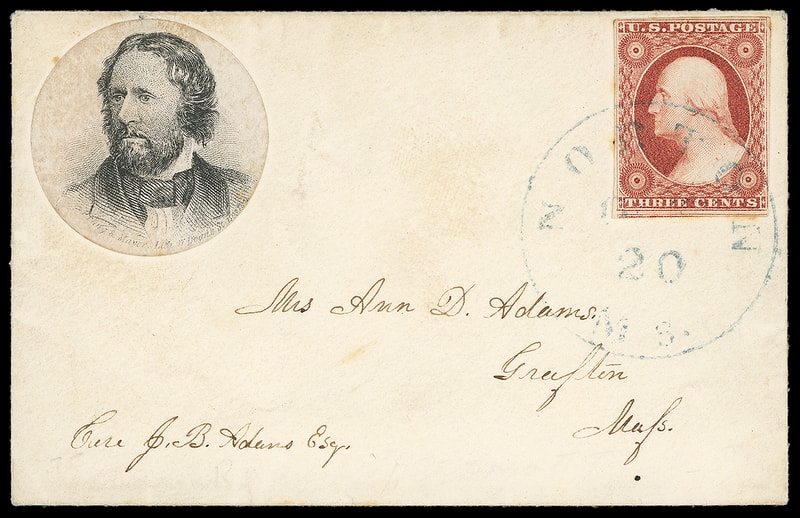 U.S. POSTAGE
THREE CENTS
20
MS.
Mrs Ann D. Adams.
Grafton
Mass.
Care J. B. Adams Esq.